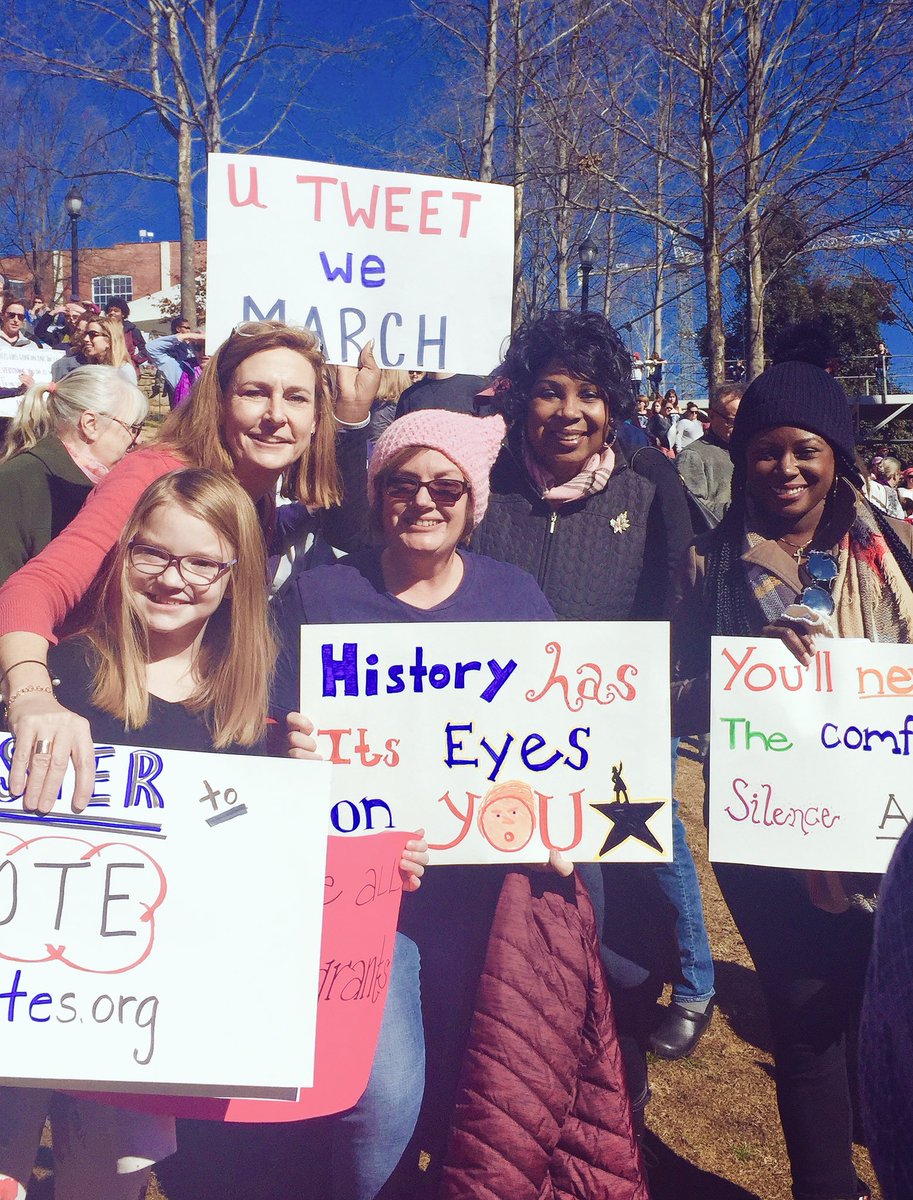 U TWEET
we
MARCH
History has
Its Eyes
on YOU
You'll ne
The comf
Silence A
STER to
OTE
tes.org
e all
grants